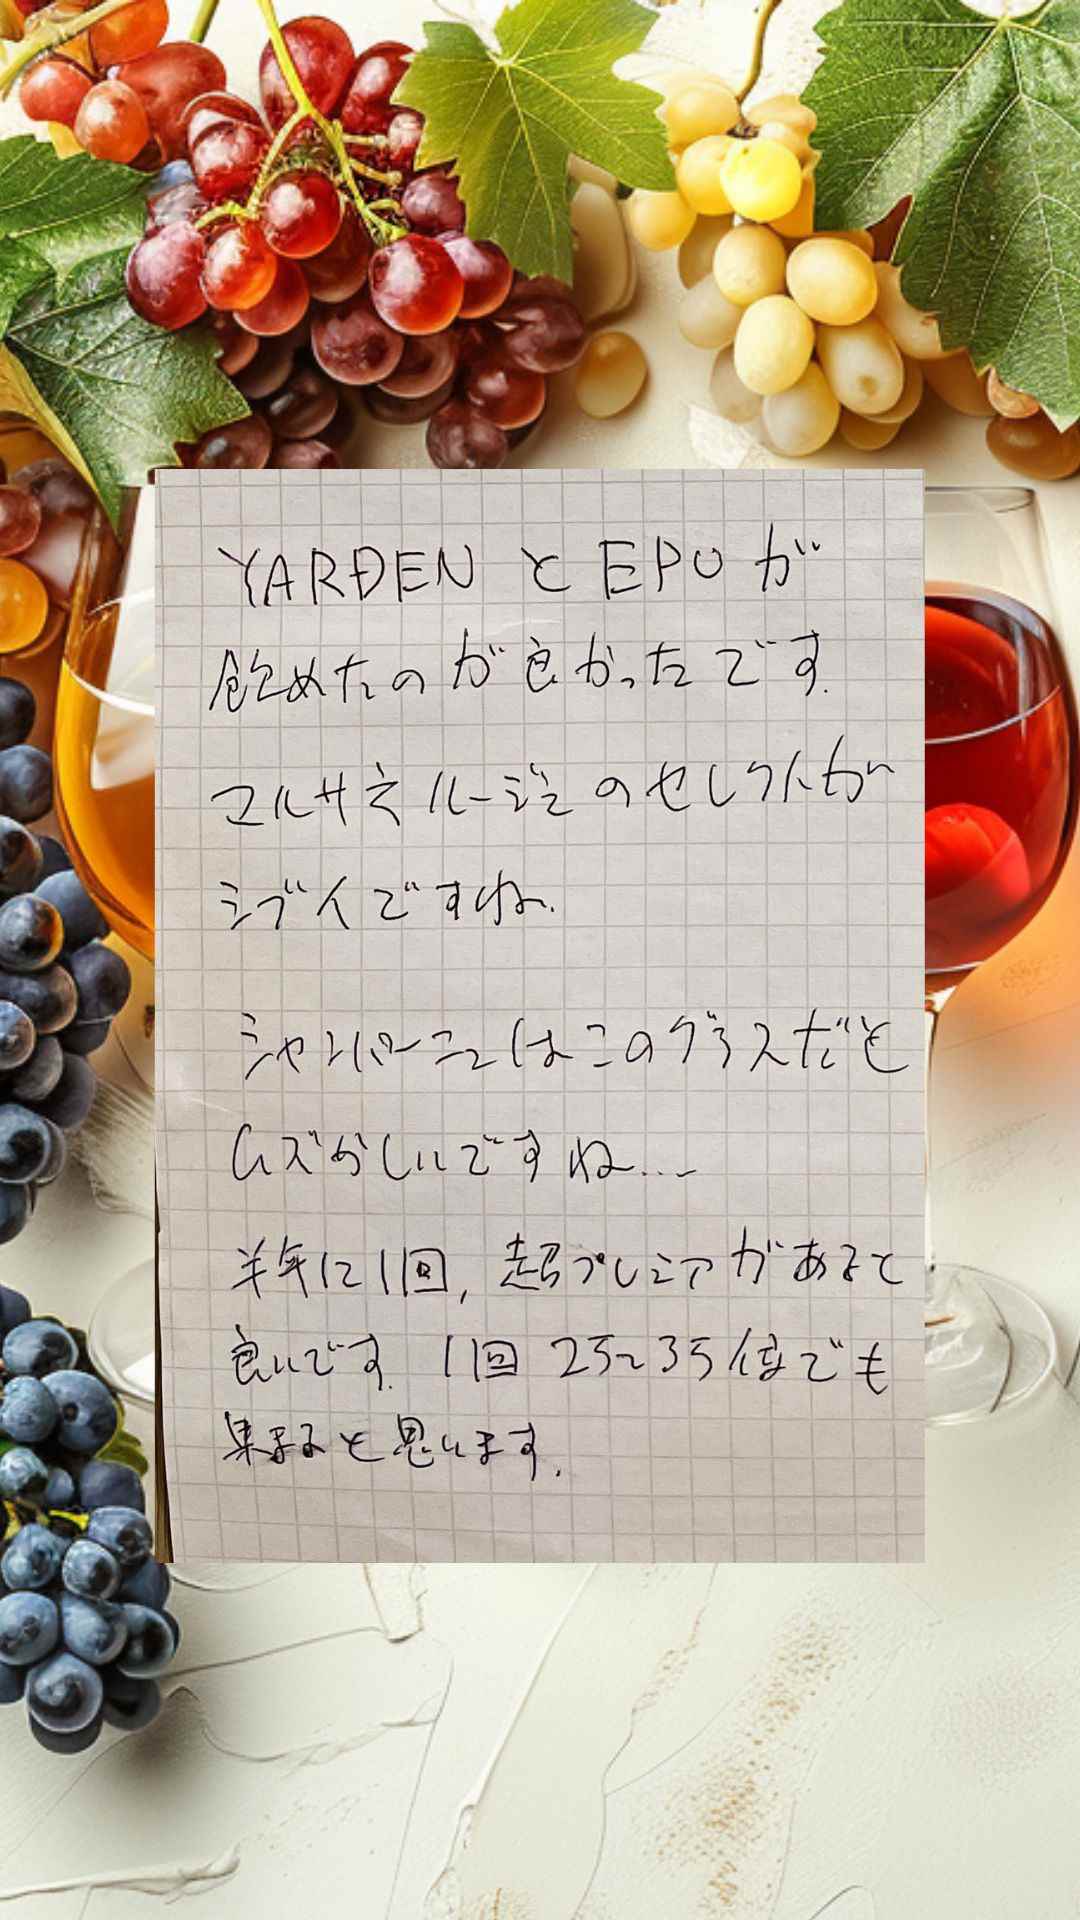 YARDENとEPUが
飲めたのが良かったです.
マルサネルージュのセレクトが
シブイですね.
シャンパーニュはこのグラスだと
ムズかしいですね...
半年に1回, 超プレミアがあると
良いです. 1回 25~35位でも
集まると思います.